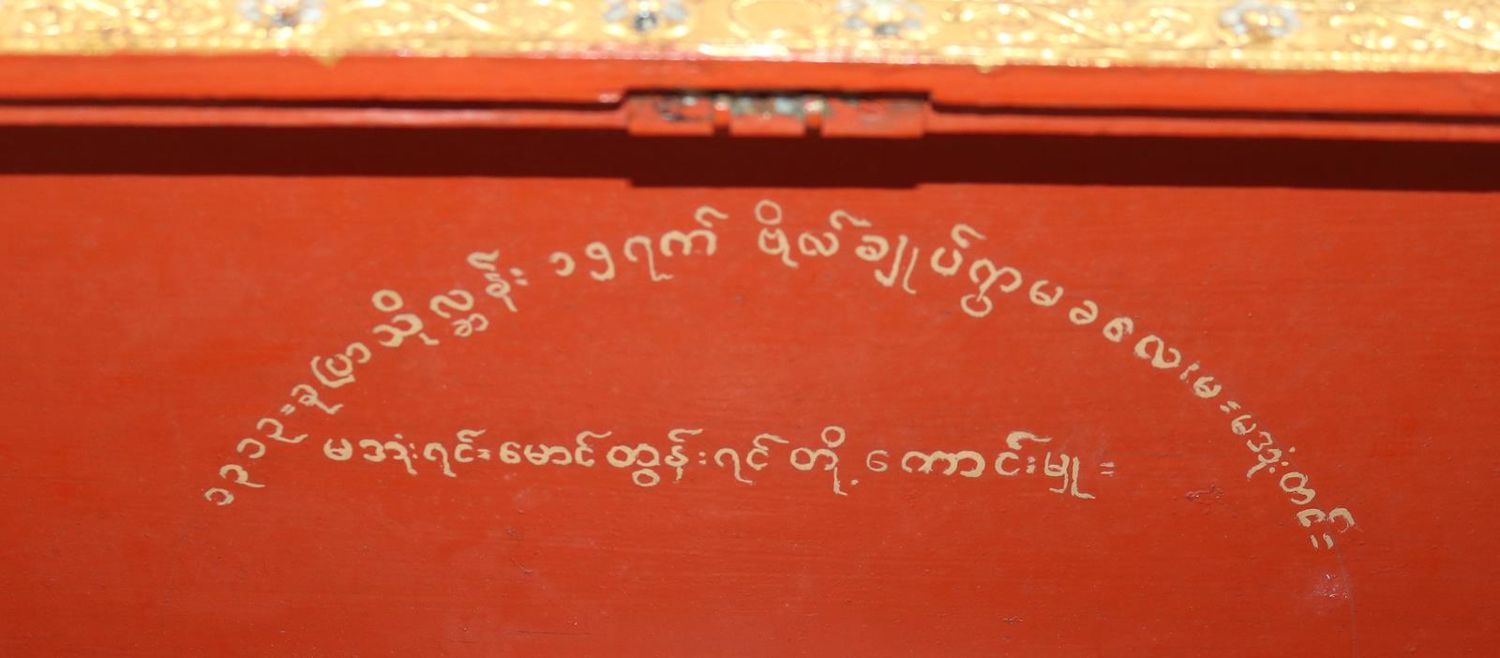 ၁၃၁၃=ခုပြာသိုလ္ဆန်း ၁၅ရက် ဗိုလ်ချုပ်ကွာမခလေးမ=မအုံးတင်=
မအုံးရင်=မောင်ထွန်းရင်တို့ ကောင်းမှု=